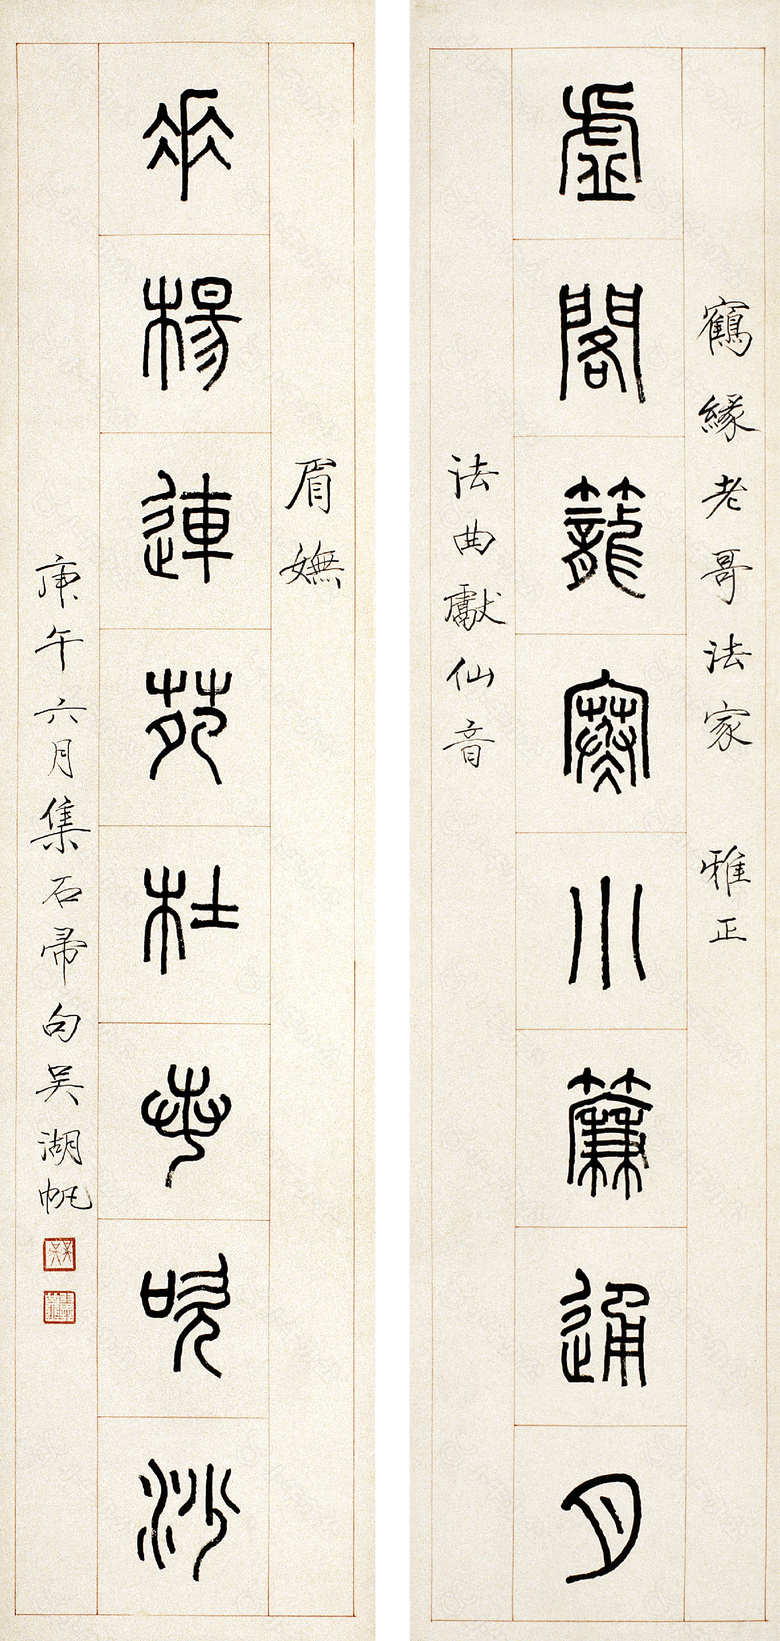 鶴緣老哥法家 雅正
虛閣籠寒小簾通月
法曲獻仙音
眉嫵
垂楊連苑杜若吹沙
庚午六月集石帚句吴湖帆